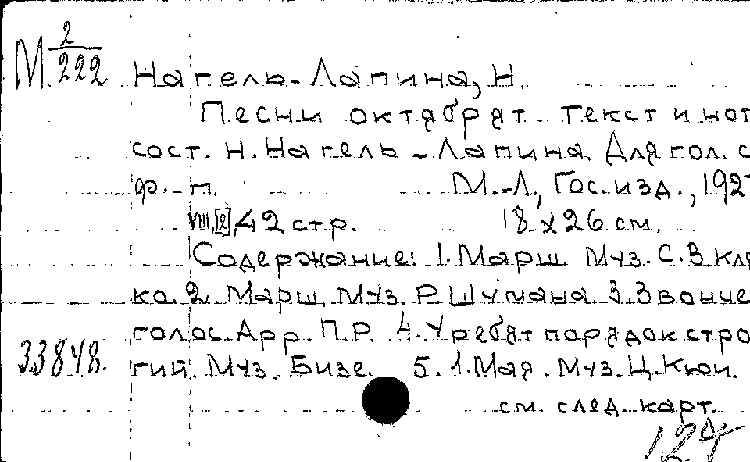 М 2/222
Нагель-Лапина, Н.
Песни октябрят текст и нот
сост. Н. Нагель-Лапина. Для гол. с
ф.-п. М.-Л., Гос. изд., 192
VIII, [2], 42 стр. 18 х 26 см.
Содержание: 1. Марш Муз. С. В кля
ко. 2. Марш. Муз. Р. Шумана 3. Звонче
голос. Арр. П. Р. 4. У ребят порядок стро
33848. гий. Муз. Бизе. 5. 1. Мая. Муз. Ц. Кюи.
см. след. карт.